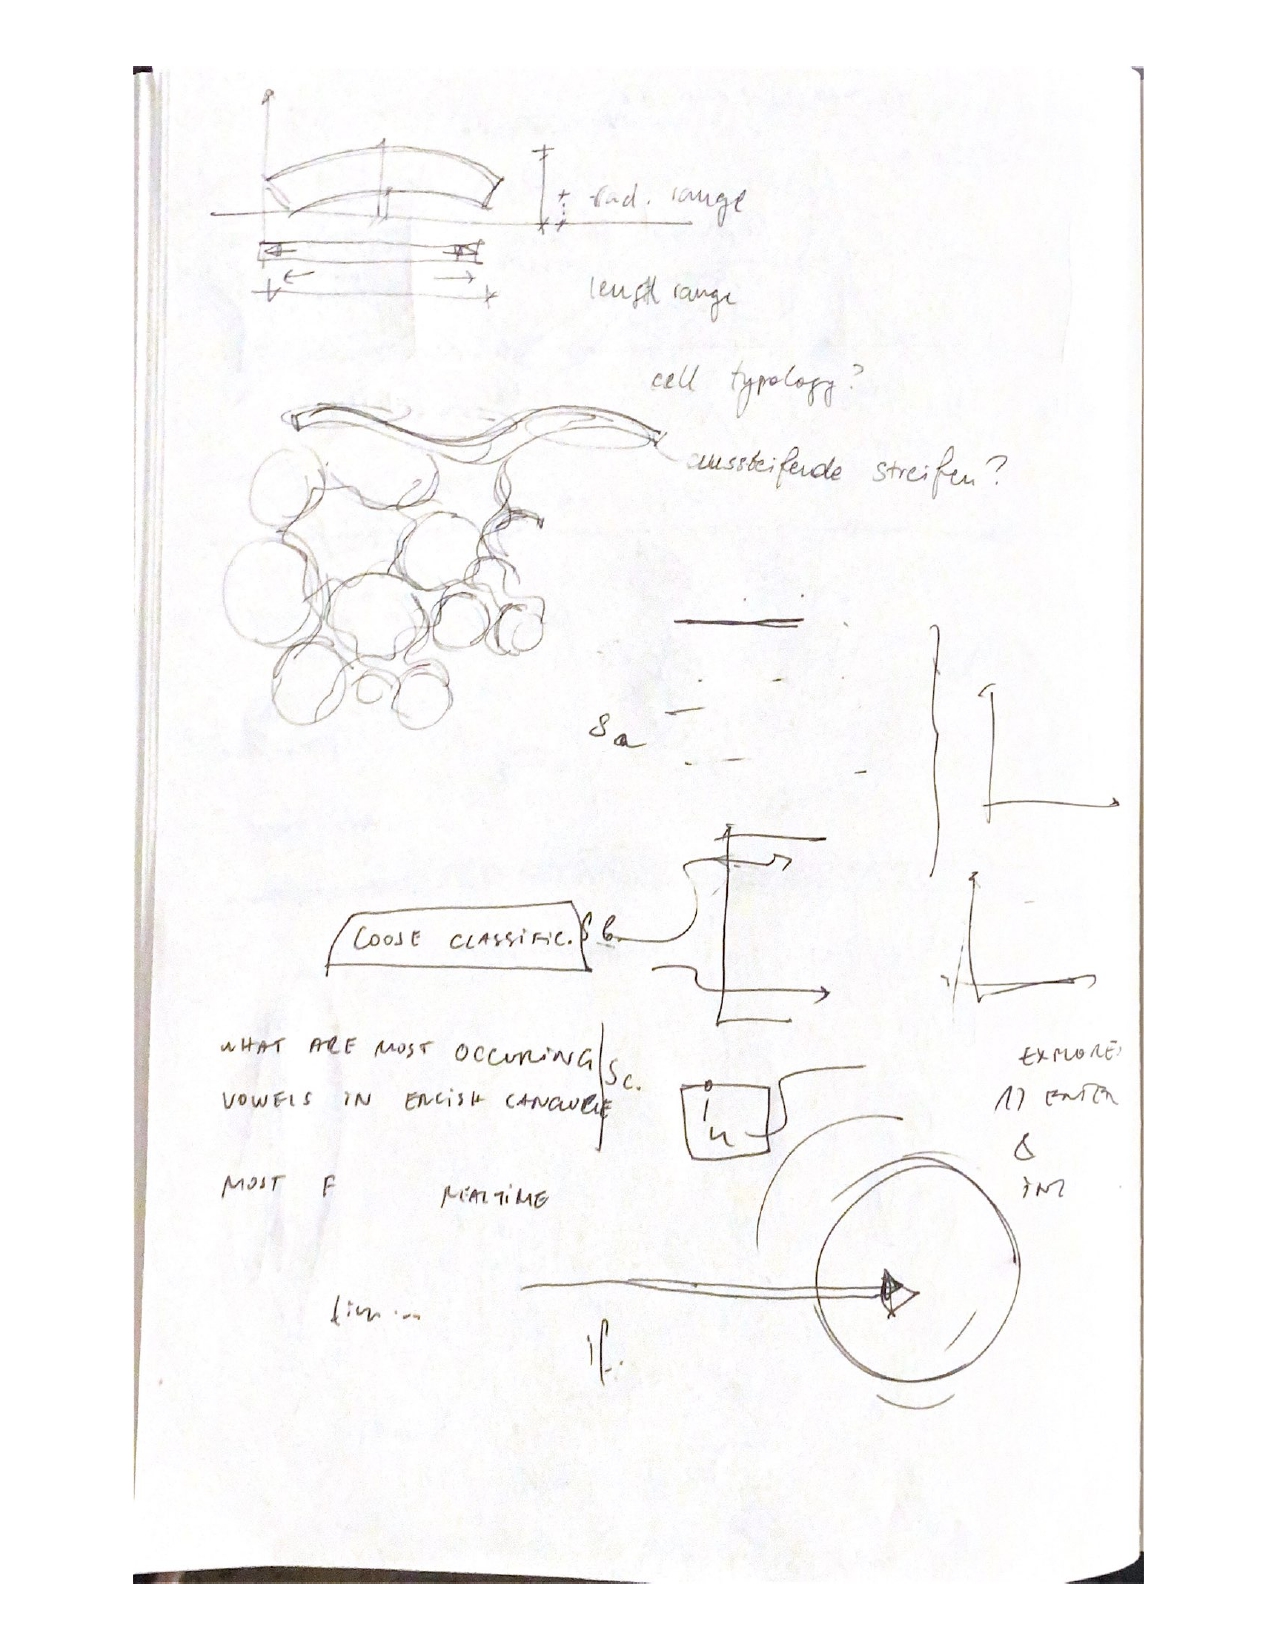 rad. range
length range
cell typology?
aussteifende streifen?
Sa
LOOSE CLASSIFIC. Sb
WHAT ARE MOST OCCURING
VOWELS IN ENGISH LANGUAGE
Sc.
in
EXPLORE:
1) ENTER
&
MOST F REALTIME
if.